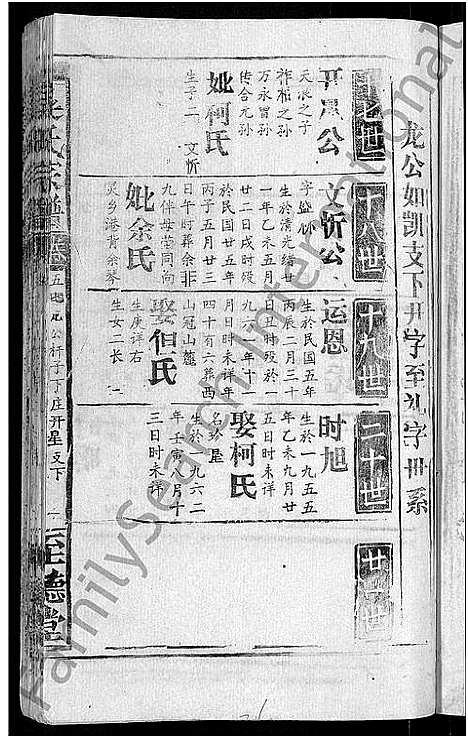 龙公如凯支下开字至礼字世系
十八世
十九世
二十世
廿一世
开星公
天浪之子
祚柏之孙
万永曾孙
传合元孙
妣柯氏
生子二 文忻
文忻公
生於清光绪廿
一年乙未五月
廿二日戌时殁
於民国廿五年
丙子五月廿三
日午时葬余非
九伴母茔同向
妣余氏
灵乡港背余琴
运恩
生於民国五年
丙辰二月三十
日丑时殁於一
九六一年十一
月日时未详年
四十有六葬西
山冠山麓
娶但氏
生庚详右
生女二长
时旭
生於一九五五
年乙未九月廿
五日时未详
娶柯氏
名玲星
生於一九六二
年壬寅八月十
三日时未详
下庄开星支下
至德堂
FamilySearch International